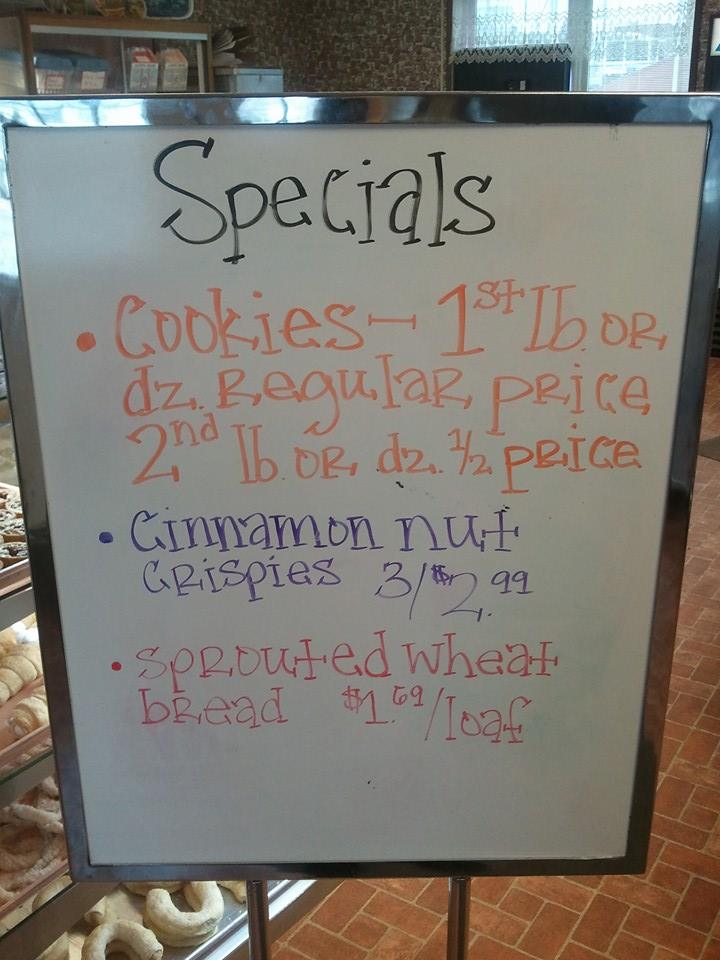 Specials
• Cookies - 1st lb. OR
dz. Regular price
2nd lb. OR dz. 1/2 price
• Cinnamon nut
crispies 3/$2.99
• sprouted wheat
bread $1.69/loaf